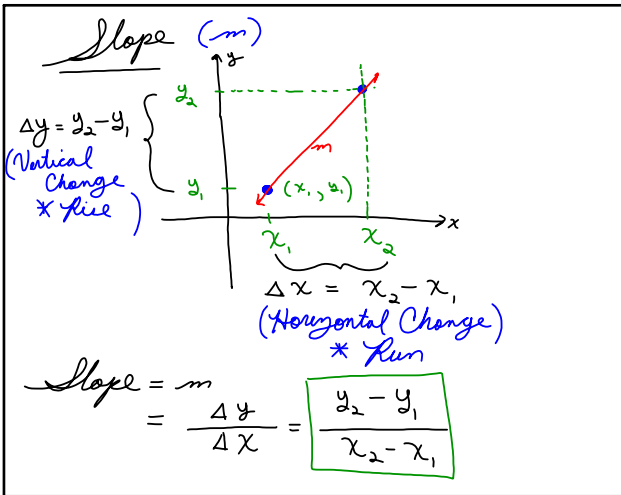 Slope (m)
y
y₂
Δy = y₂ - y₁
(Vertical
Change
* Rise)
m
y₁
(x₁, y₁)
x
x₁ x₂
Δx = x₂ - x₁
(Horizontal Change)
* Run
Slope = m
= Δy/Δx = (y₂ - y₁)/(x₂ - x₁)